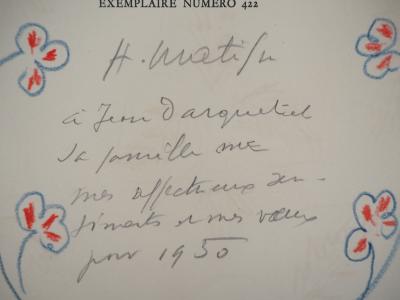 EXEMPLAIRE NUMÉRO 422
H. Matisse
à Jean Darquet et
sa famille
mes affectueux sen-
timents et mes vœux
pour 1950